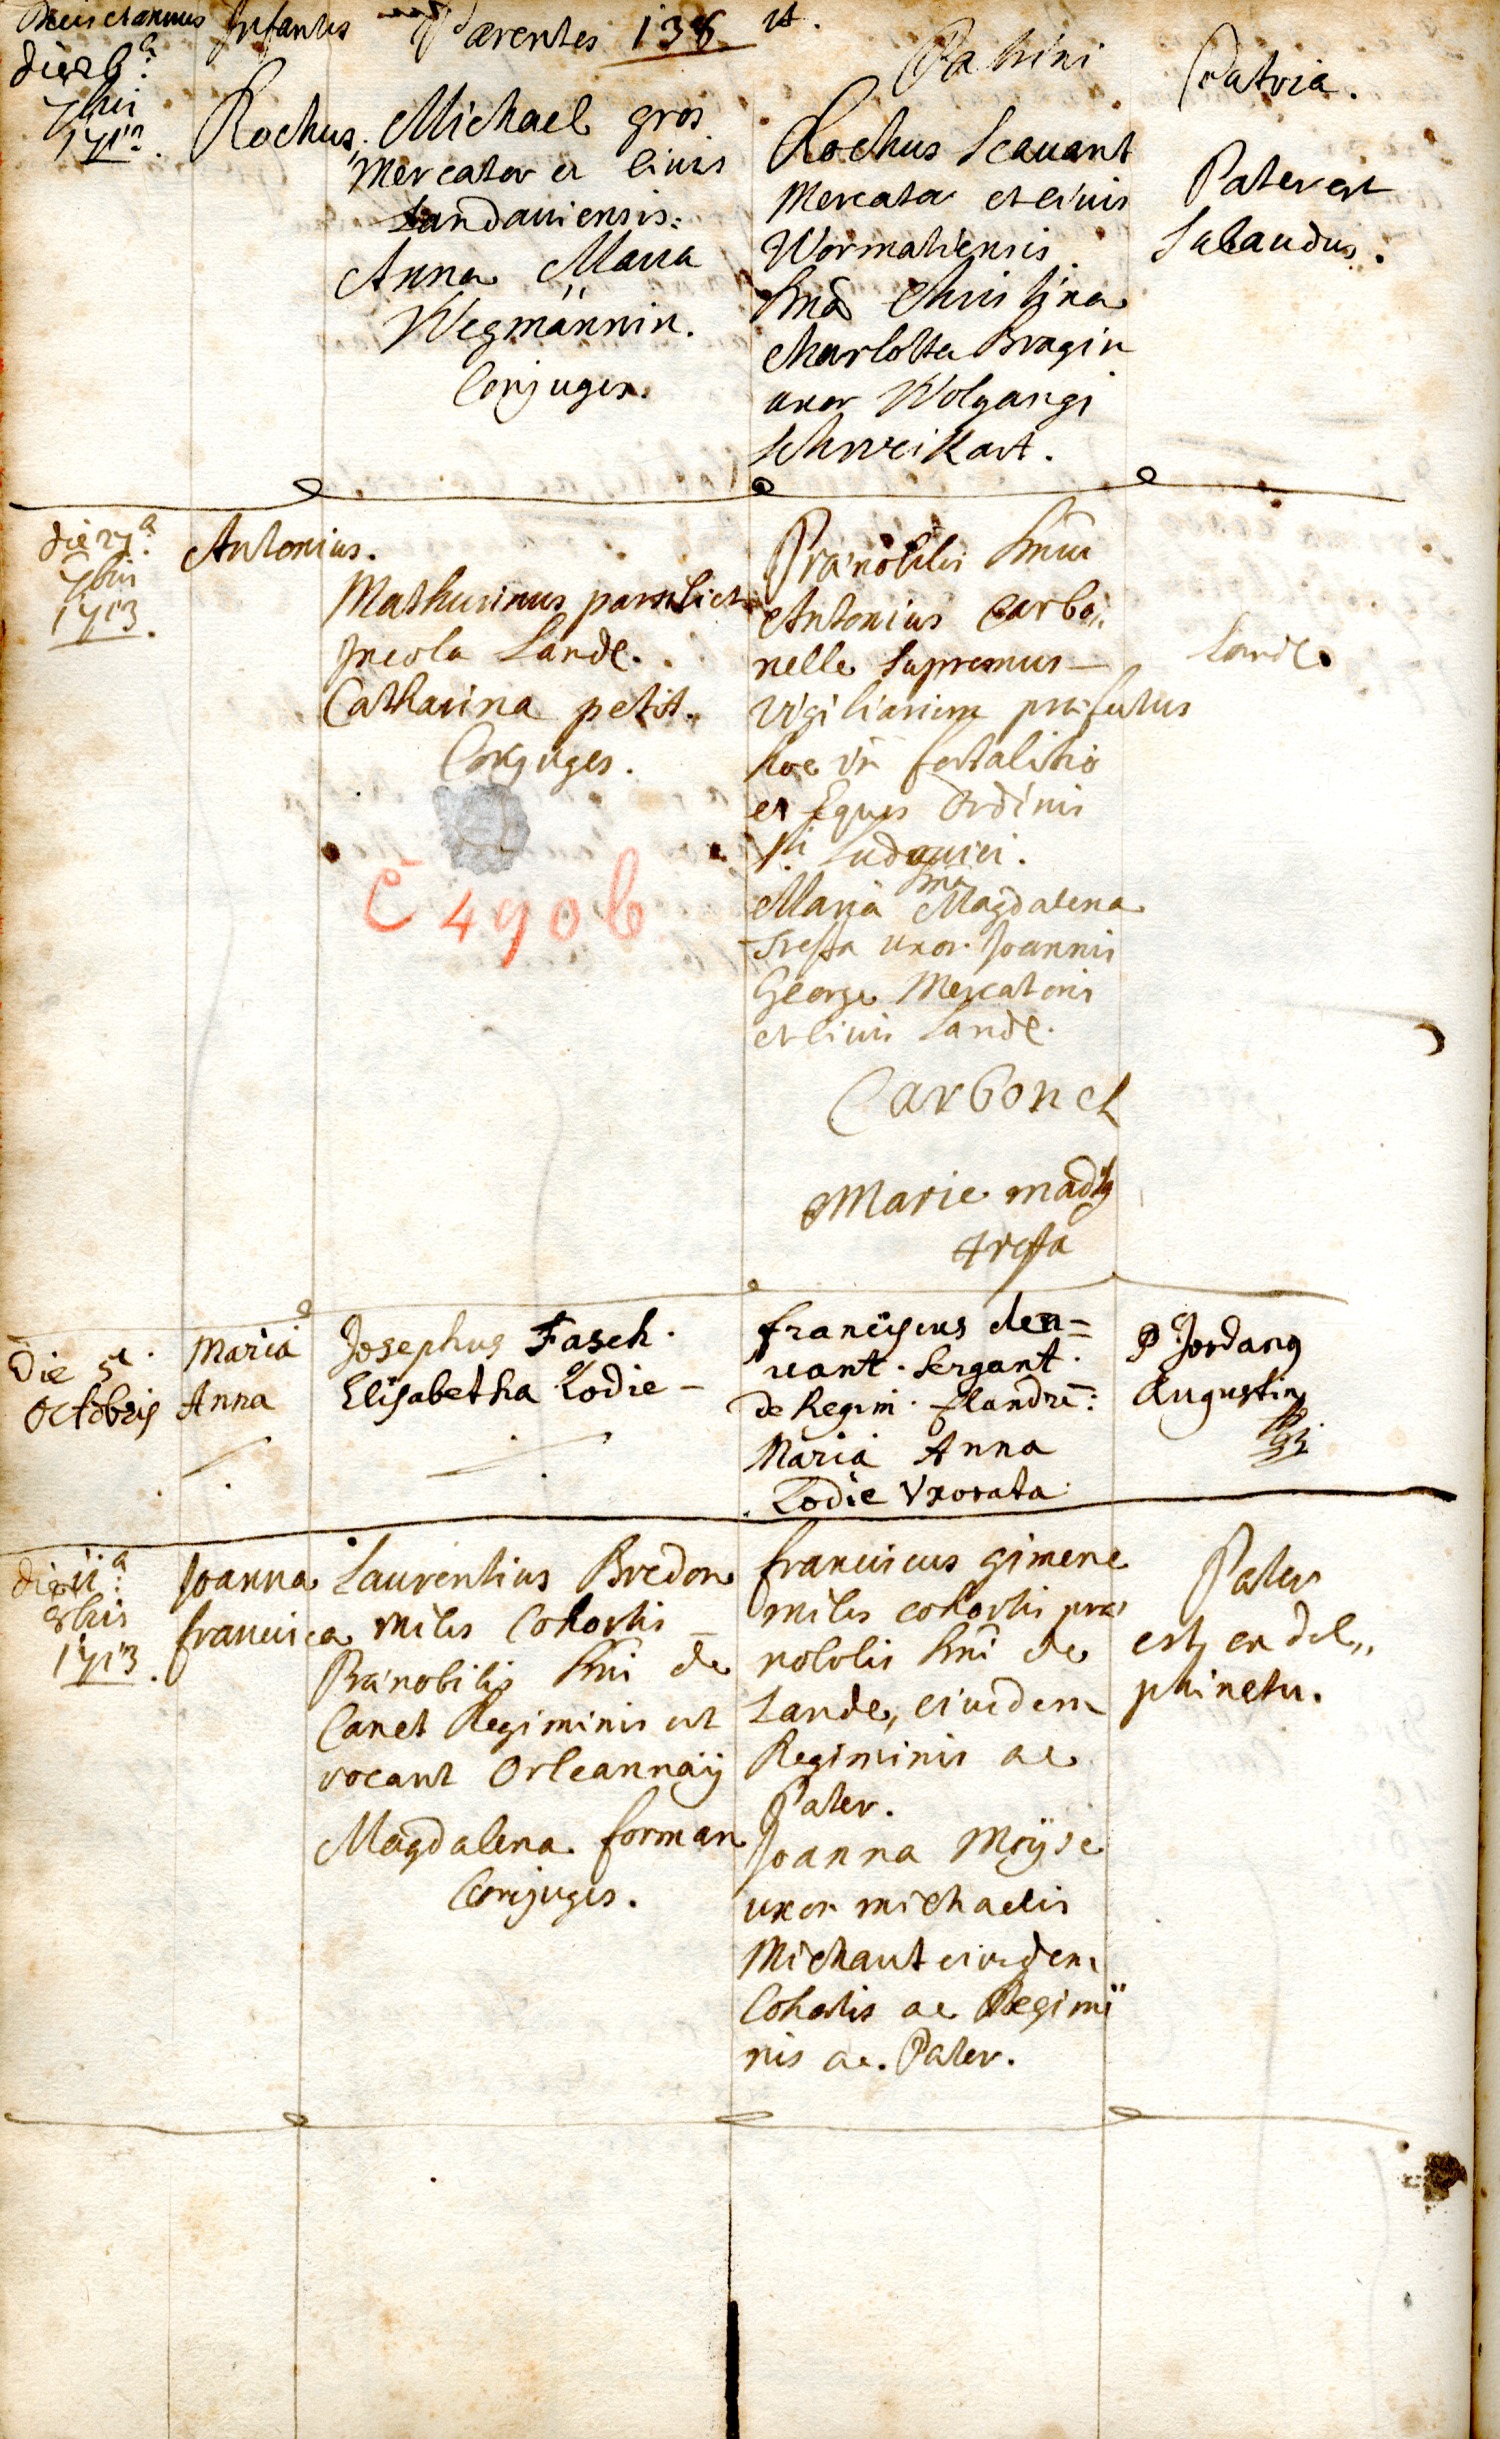 Infantis Parentes 138
Patrini
Patria.
die 26a
7bris
Rochus. Michael gros
Mercator et Civis
Landaviensis:
Anna Maria
Wegmännin.
Conjuges.
Rochus Scavant
Mercator et Civis
Wormatiensis.
Christina
Charlotta Bragin
uxor Wolgangi
Schweikart.
Pater est
Sabaudus.
die 27a
7bris
1713.
Antonius.
Mathurinus
Incola Landę.
Catharina petit.
Conjuges.
C 490b
Prænobilis Dnus
Antonius Carbo„
nelle Supremus
vigiliarum præfectus
hoc in fortalitio
et Eques Ordinis
Sti Ludovici.
Dna
Maria Magdalena
Tressa uxor Joannis
George Mercatoris
et Civis Landę.
Carbonel
Marie madlg
tressa
Landę.
Die 5ta
Octobris
Maria
Anna
Josephus Fasch.
Elisabetha Lodie -
franciscus den=
vant. Sergant.
de Regim. Flandri:
Maria Anna
Lodie Vxorata.
P Jordang
Augustin9
die 11a
8bris
1713.
Joanna
francisca
Laurentius Bredon
Miles Cohortis
Prænobilis Dni de
Canet Regiminis ut
vocant Orleannaÿ
Magdalena forman
Conjuges.
franciscus gimene
miles cohortis præ
nobilis Dni de
Lande, eiusdem
Regiminis ac
Pater.
Joanna Moÿse
uxor michaelis
Michaut eiusdem
Cohortis ac Regimi"
nis ac. Pater.
Pater
est ex del„
phinetu.